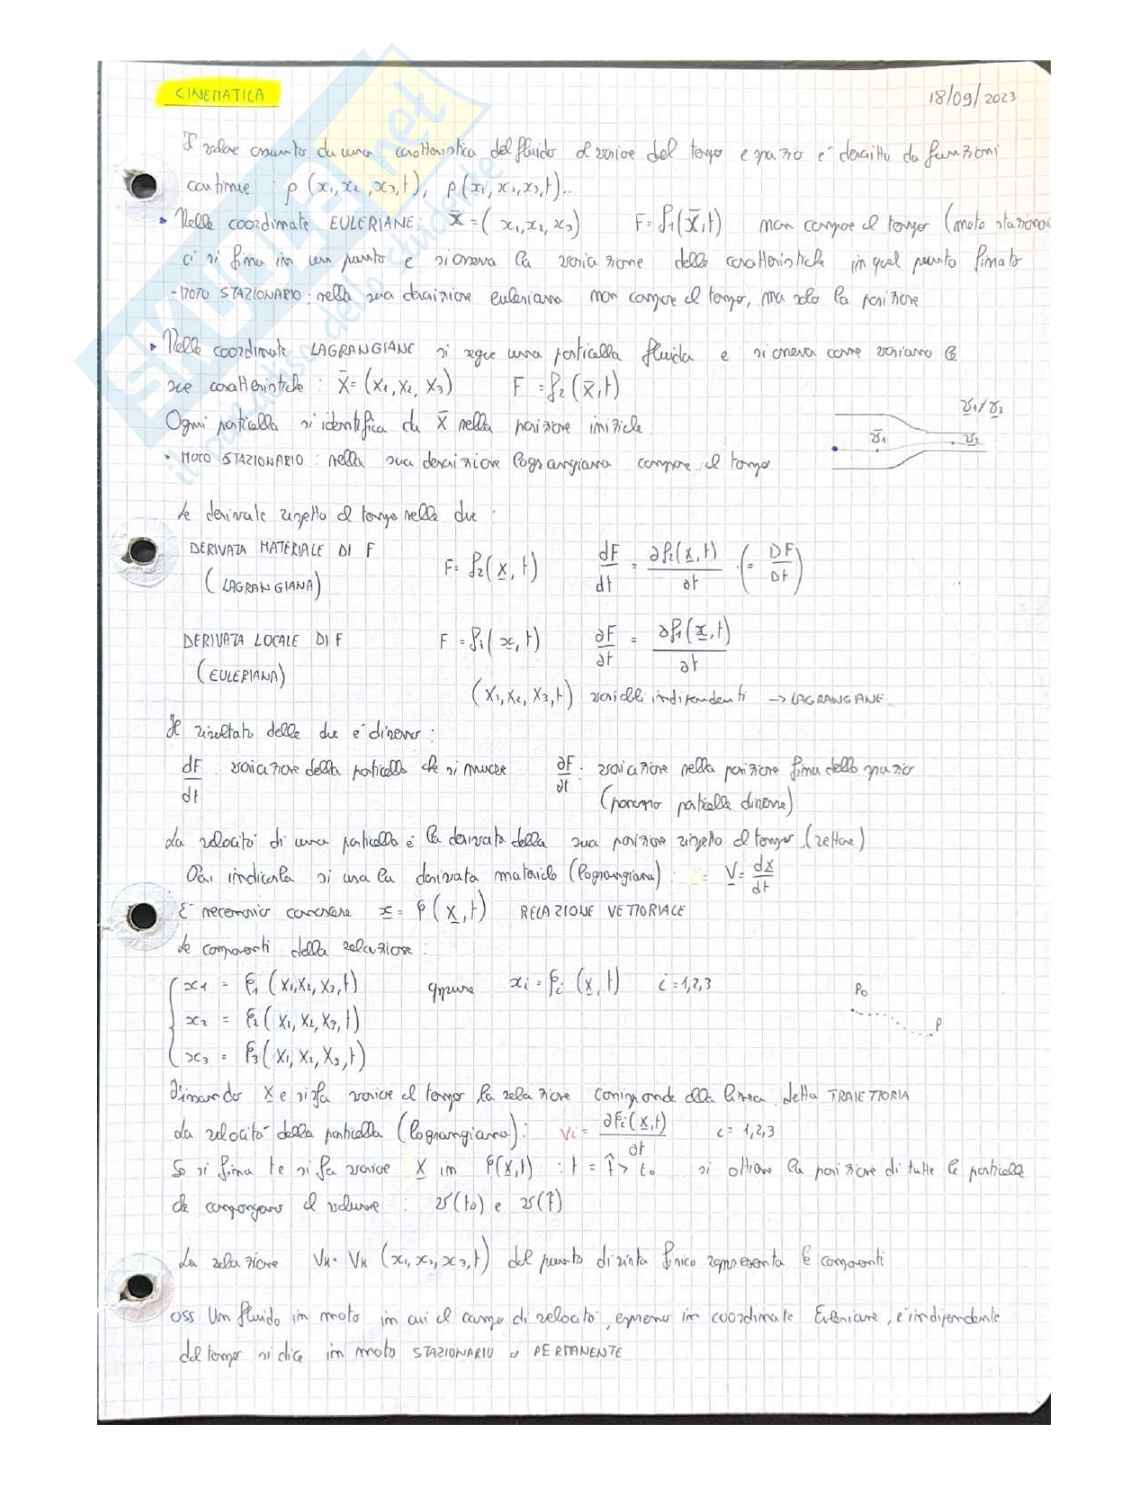 CINEMATICA
18/09/2023
Il valore assunto da una caratteristica del fluido al variare del tempo e spazio è descritto da funzioni
continue : ρ (x₁, x₂, x₃, t), p (x₁, x₂, x₃, t)...
• Nelle coordinate EULERIANE: x̄ = ( x₁, x₂, x₃) F = f₁(x̄, t) non compare il tempo (moto staziona
ci si fissa in un punto e si osserva la variazione delle caratteristiche in quel punto fissato
- MOTO STAZIONARIO : nella sua descrizione euleriana non compare il tempo, ma solo la posizione
• Nelle coordinate LAGRANGIANE si segue una particella fluida e si osserva come variano le
sue caratteristiche : X̄ = (X₁, X₂, X₃) F = f₂ (X̄, t)
v₁ ≠ v₂
Ogni particella si identifica da X̄ nella posizione iniziale
v̄₁ v₂
• MOTO STAZIONARIO : nella sua descrizione lagrangiana compare il tempo
Le derivate rispetto al tempo nelle due :
DERIVATA MATERIALE DI F F = f₂ (X, t) dF/dt = ∂f₂(X, t)/∂t (= DF/Dt)
( LAGRANGIANA)
DERIVATA LOCALE DI F F = f₁ (x, t) ∂F/∂t = ∂f₁(x, t)/∂t
(EULERIANA)
(X₁, X₂, X₃, t) variabili indipendenti → LAGRANGIANE
Il risultato delle due è diverso :
dF/dt : variazione della particella che si muove ∂F/∂t : variazione nella posizione fissa dello spazio
(passano particelle diverse)
La velocità di una particella è la derivata della sua posizione rispetto al tempo (vettore)
Per indicarla si usa la derivata materiale (lagrangiana) : = V = dx/dt
È necessario conoscere x = φ (X, t) RELAZIONE VETTORIALE
Le componenti della relazione :
x₁ = φ₁ (X₁, X₂, X₃, t) oppure xi = φi (X, t) i = 1,2,3
P₀
x₂ = φ₂ ( X₁, X₂, X₃, t)
P
x₃ = φ₃ ( X₁, X₂, X₃, t)
Fissando X e si fa variare il tempo la relazione corrisponde alla linea della TRAIETTORIA
La velocità della particella (lagrangiana) : Vi = ∂φi (X, t)/∂t i = 1,2,3
Se si fissa t e si fa variare X in φ(X, t) : t = t̂ > t₀ si ottiene la posizione di tutte le particelle
che compongono il volume : v (t₀) e v (t̂)
La relazione Vk = Vk (x₁, x₂, x₃, t) dal punto di vista fisico rappresenta le componenti
OSS Un fluido in moto in cui il campo di velocità, espresso in coordinate Euleriane, è indipendente
dal tempo si dice in moto STAZIONARIO o PERMANENTE